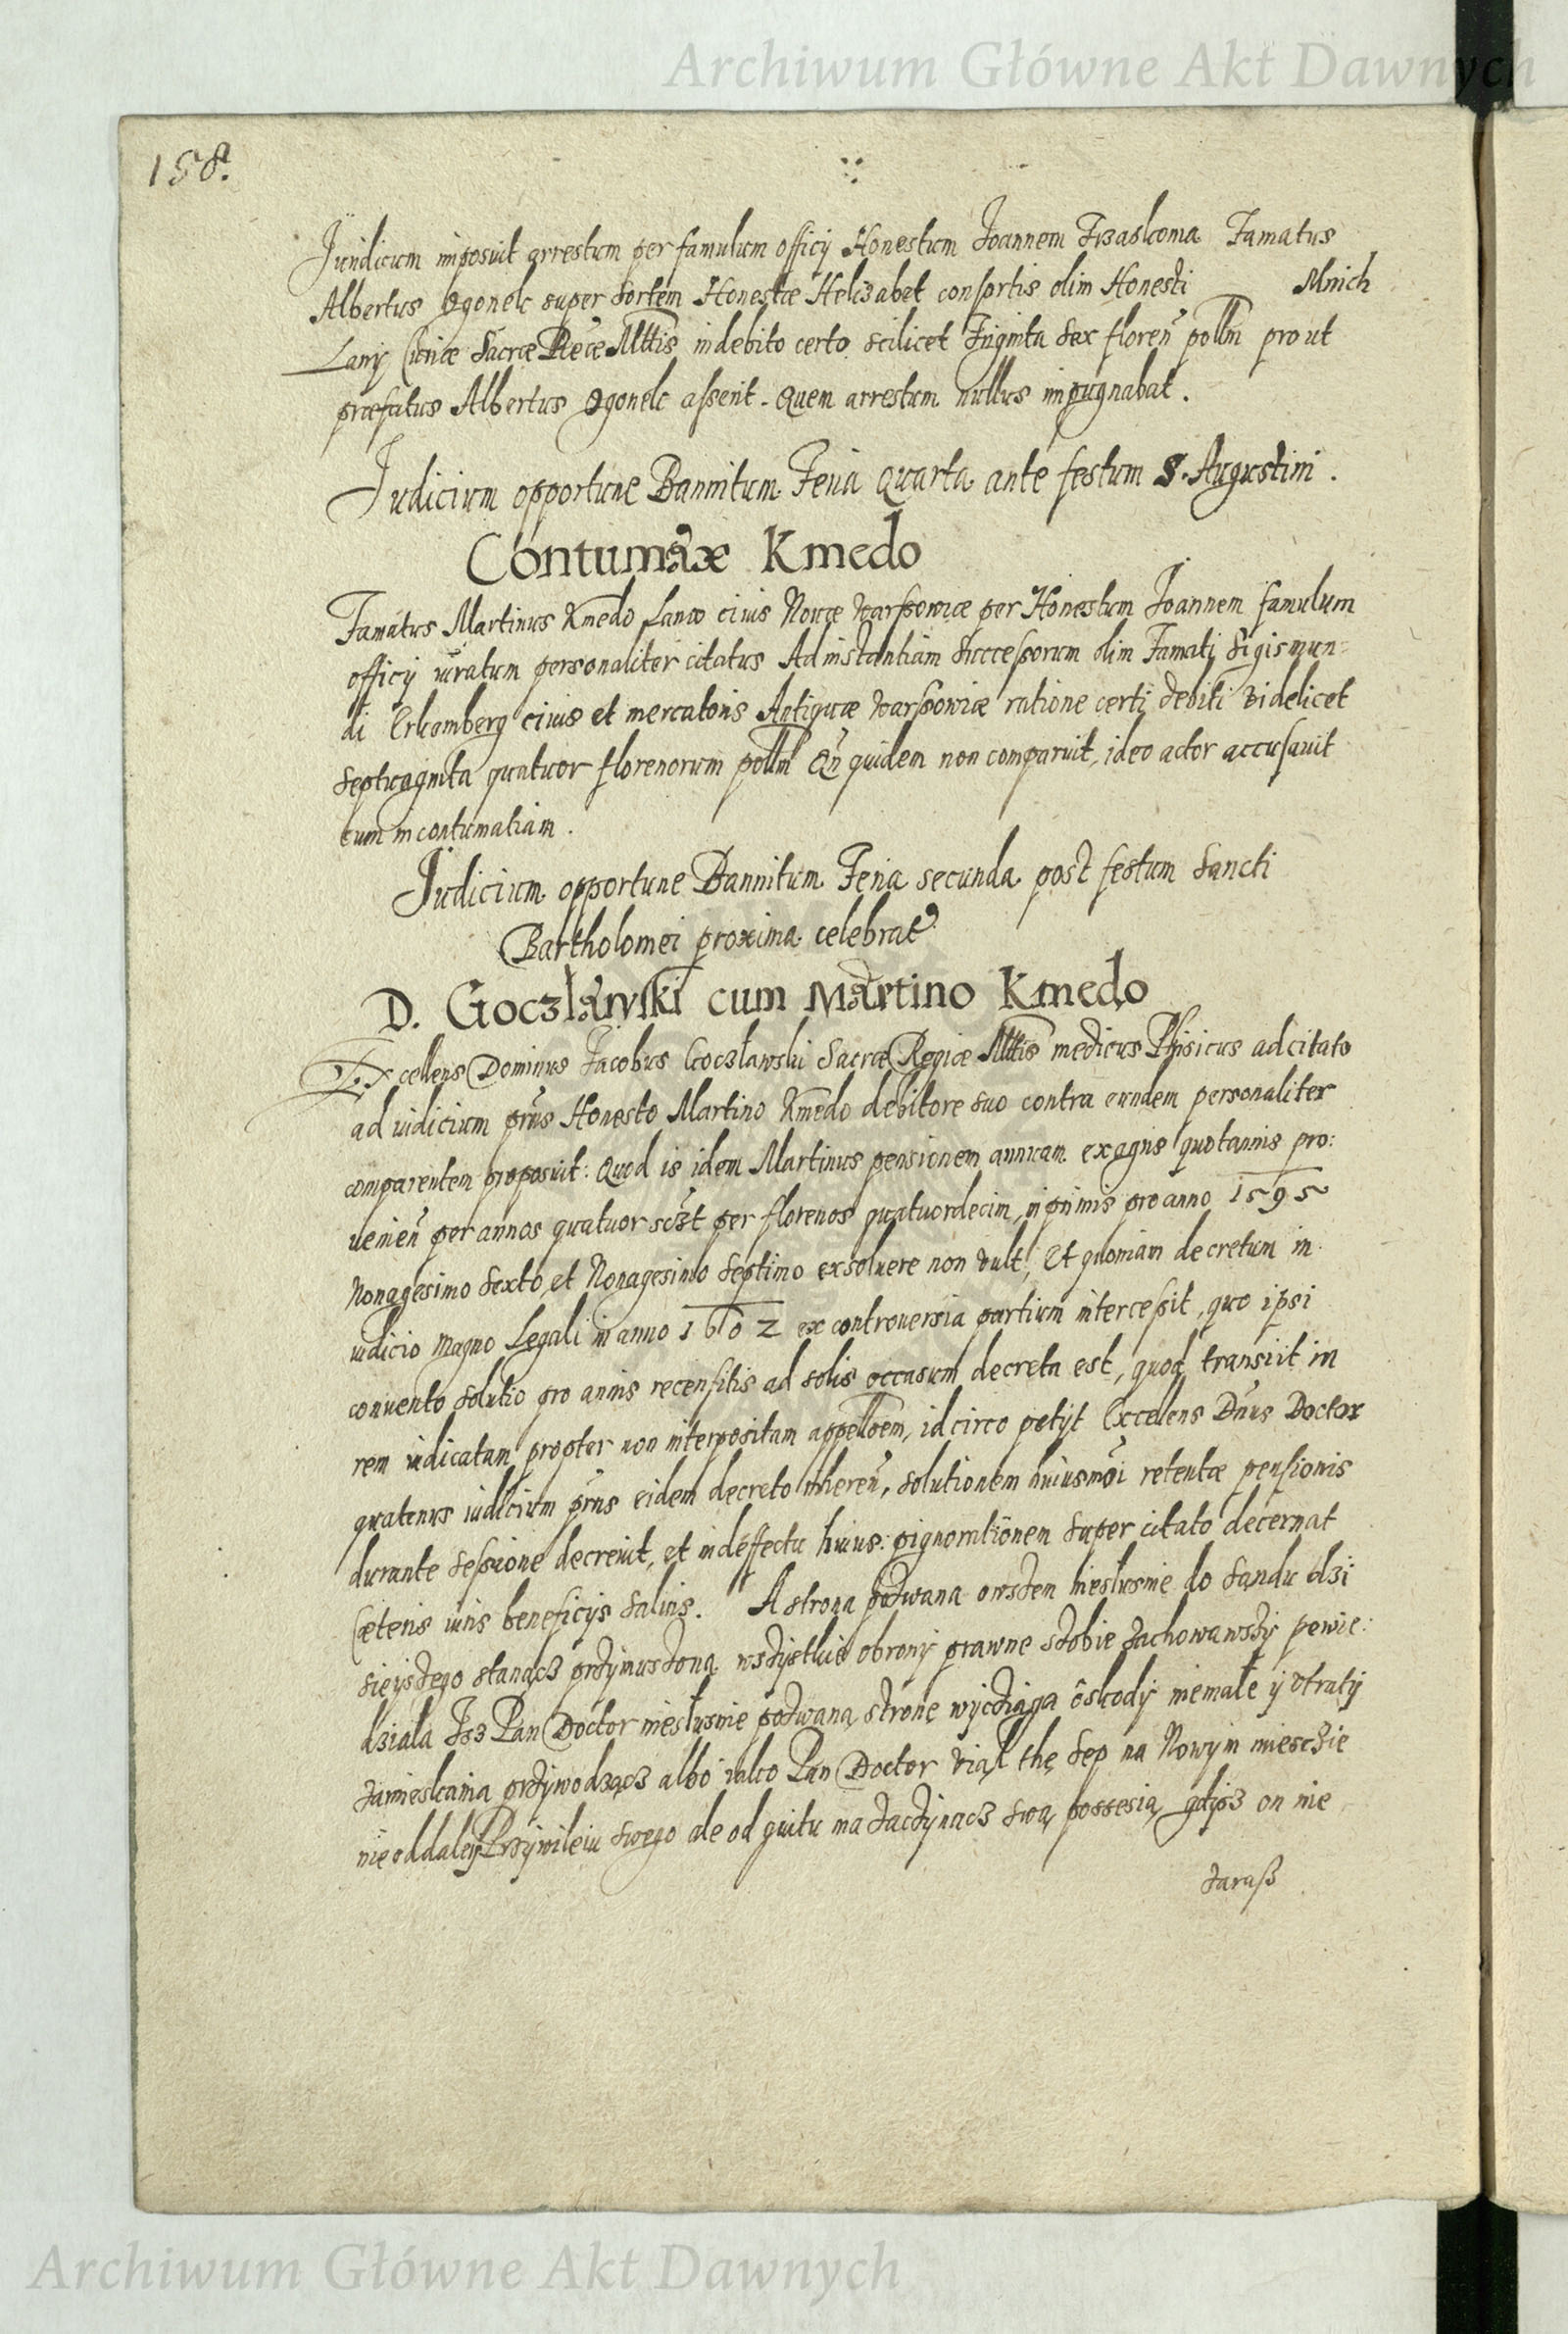 Archiwum Główne Akt Dawnych
158.
Iuridicum imposuit arrestum per famulum officij Honestum Joannem Trzaskoma Famatus
Albertus Ogonek super sortem Honestæ Helzabet consortis olim Honesti Mnich
Lanij Curiæ Sacræ Regæ Mttis in debito certo scilicet Triginta sex floren polln prout
præfatus Albertus Ogonek asserit. Quem arrestum nullus impugnabat.
Iudicium opportune Bannitum Feria Quarta ante festum S. Augustini.
Contumax Kmedo
Famatus Martinus Kmedo Lanio civis Novæ Warssoviæ per Honestum Joannem famulum
officij iuratum personaliter citatus Ad instantiam Successorum olim Famati Sigismun=
di Erkomberg civis et mercatoris Antiquæ Warssoviæ ratione certi debiti videlicet
septuaginta quatuor florenorum polln Qn quidem non comparuit, ideo actor accusavit
eum in contumatiam.
Judicium opportune Bannitum Feria secunda post festum Sancti
Bartholomei proxima celebrat
D. Goczławski cum Martino Kmedo
Excellens Dominus Jacobus Goczławski Sacræ Regiæ Mttis medicus Phisicus adcitato
ad iudicium prns Honesto Martino Kmedo debitore suo contra eundem personaliter
comparentem proposuit: Quod is idem Martinus pensionem annuam ex agris quotannis pro:
venien per annos quatuor sczt per florenos quatuordecim, in primis pro anno 1595
Nonagesimo Sexto, et Nonagesimo Septimo exsolvere non vult, Et quoniam decretum in
iudicio Magno Legali in anno 1602 ex controversia partium intercessit, quo ipsi
convento solutio pro annis recensitis ad solis occasum decreta est, quod transiit in
rem iudicatam propter non interpositam appelloem, idcirco petijt Excellens Dnus Doctor
quatenus iudicium prns eidem decreto inheren, solutionem huiusmoi retentæ pensionis
durante sessione decrevit, et in deffectu huius: pignorationem super citato decernat
Cæteris iuris beneficijs salvis. A strona pozwana owszem niesłusnie do Sandu dzi
sieyszego stanącz przymuszona wszystkie obrony prawne zobie zachowawszy powie:
dziala Isz Pan Doctor niesłusnie pozwaną stronę wyciąga o skody niemałe y utraty
zamieskania przywodzącz albo iako Pan Doctor wiął thę Sep na Nowym miesczie
nie oddaley Przywileiu swego ale od quitu ma zaczynacz swą possesią gdysz on nie
zarasz
Archiwum Główne Akt Dawnych